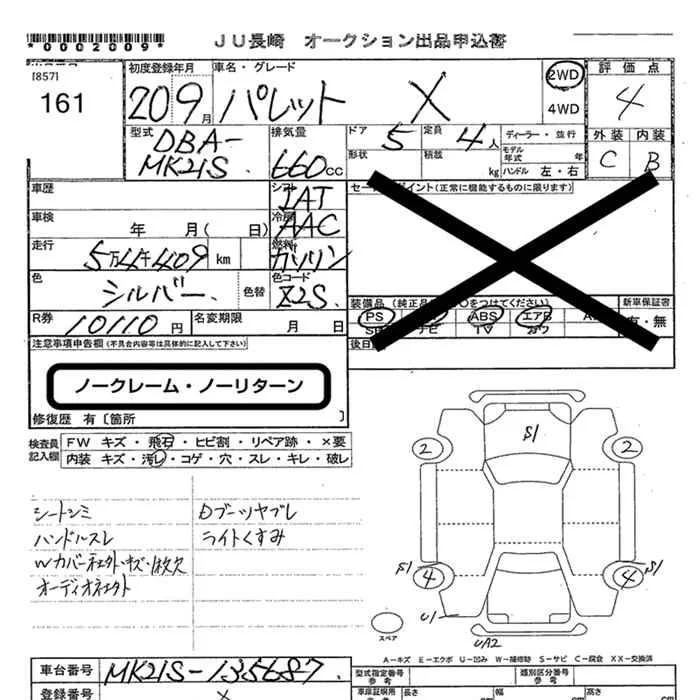 *0002009*
JU長崎 オークション出品申込書
[857]
161
初度登録年月
20 9月
車名・グレード
パレット X
2WD
4WD
評価点
4
外装 内装
C B
型式
DBA-
MK21S
排気量
660cc
ドア 5
定員 4人
形状
積載 kg
ディーラー・並行
モデル年式 年
ハンドル 左・右
車歴
シフト
IAT
車検 年 月(日)
冷房
AAC
走行 5万4千409 km
燃料
ガソリン
色 シルバー
色替
色コード
Z2S
R券 10110円
名変期限 月 日
セールスポイント(正常に機能するものに限ります)
装備品(純正品に○をつけてください)
PS ABS エアB
ナビ TV カワ
新車保証書
有・無
後日
注意事項申告欄(不具合内容等は具体的に記入して下さい)
ノークレーム・ノーリターン
修復歴 有〔箇所 〕
検査員記入欄
FW キズ・飛石・ヒビ割・リペア跡・×要
内装 キズ・汚レ・コゲ・穴・スレ・キレ・破レ
シートシミ
ハンドルスレ
Wカバーネェクト・キズ・1枚欠
オーディオネェクト
Dブーツヤブレ
ライトくすみ
S1
2 2
S1 4 4 S1
U1
UA2
スペア
A-キズ E-エクボ U-凹み W-補修跡 S-サビ C-腐食 XX-交換済
車台番号 MK21S-135687
登録番号 ×
型式指定番号
参考
類別区分番号
参考
車庫証明用
参考
長さ 幅 高さ
cm